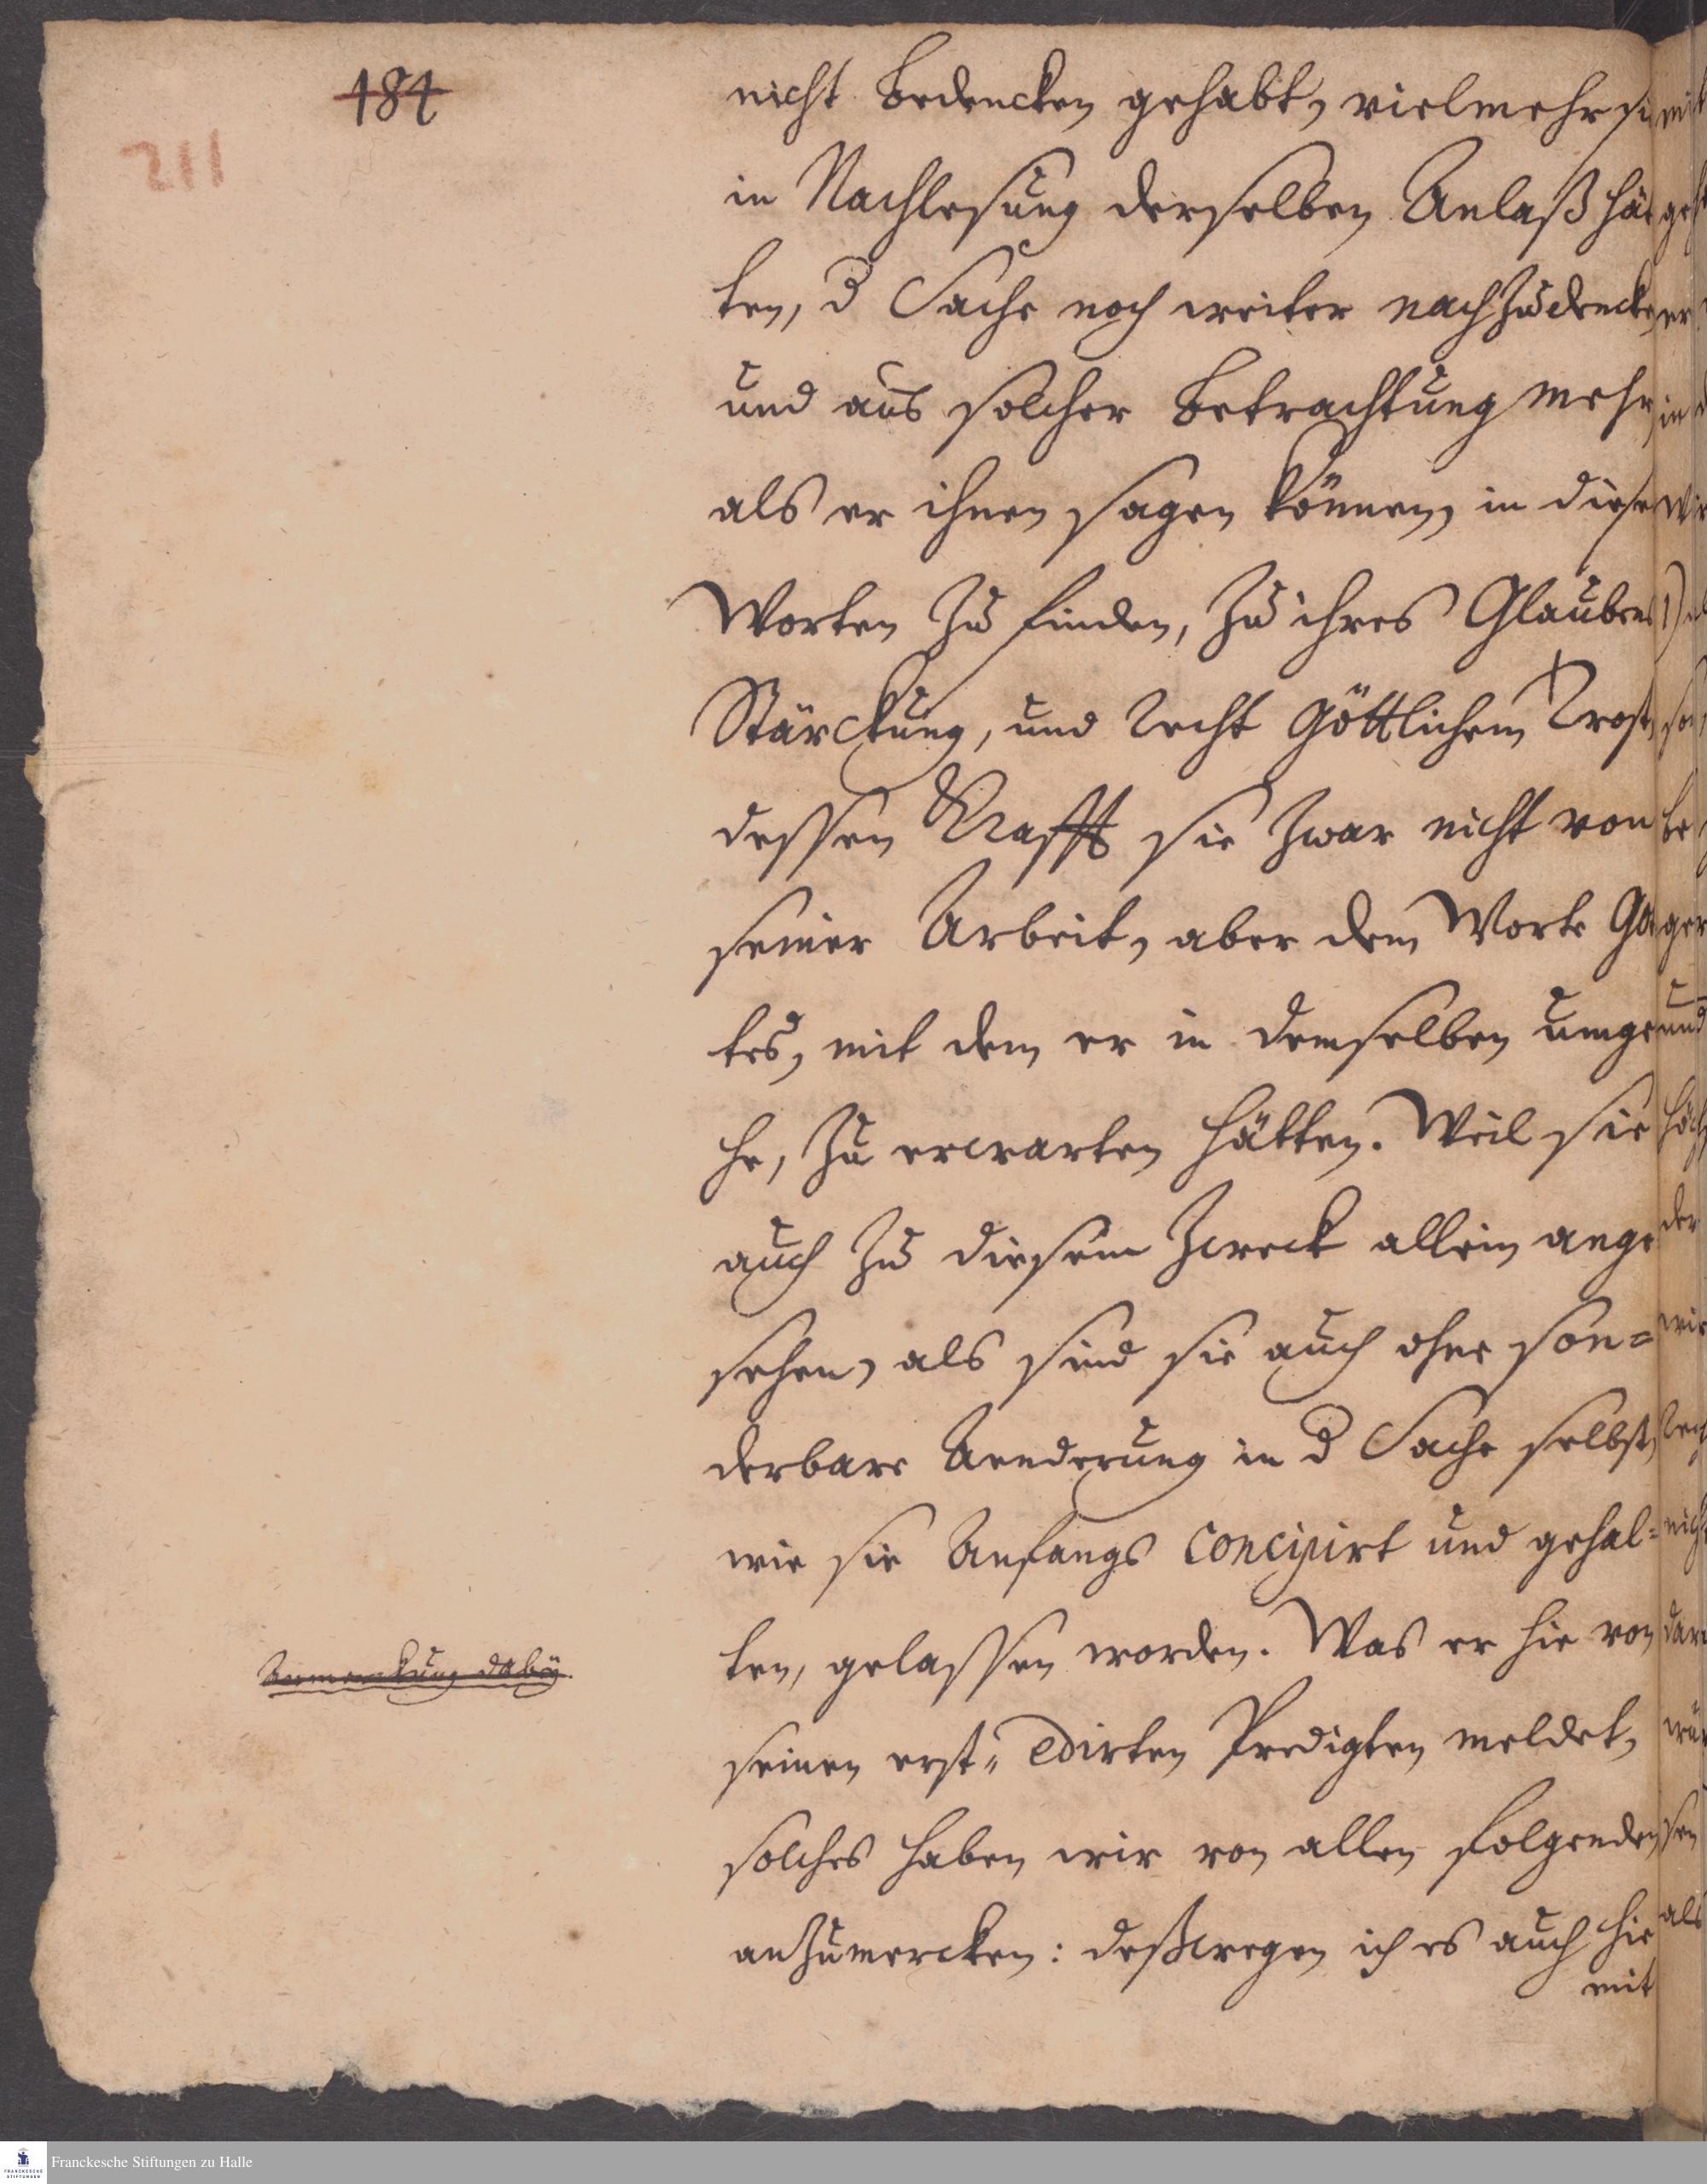 184
211
nicht Bedencken gehabt, vielmehr si
in Nachlesung derselben Anlaß hät
ten, d Sache noch weiter nachzudencken
und aus solcher Betrachtung mehr,
als er ihnen sagen können, in diesen
Worten zu finden, zu ihres Glaubens
Stärckung, und recht Göttlichem Trost,
dessen Krafft sie zwar nicht von
seiner Arbeit, aber dem Worte Got
tes, mit dem er in demselben umge
he, zu erwarten hätten. Weil sie
auch zu diesem Zweck allein ange
sehen, als sind sie auch ohne son=
derbare Aenderung in d Sache selbst,
wie sie Anfangs concipirt und gehal=
ten, gelassen worden. Was er hie von
Anmerckung dabey.
seinen erst= edirten Predigten meldet,
solches haben wir von allen folgenden
anzumercken: deßwegen ich es auch hie
mit
Franckesche Stiftungen zu Halle